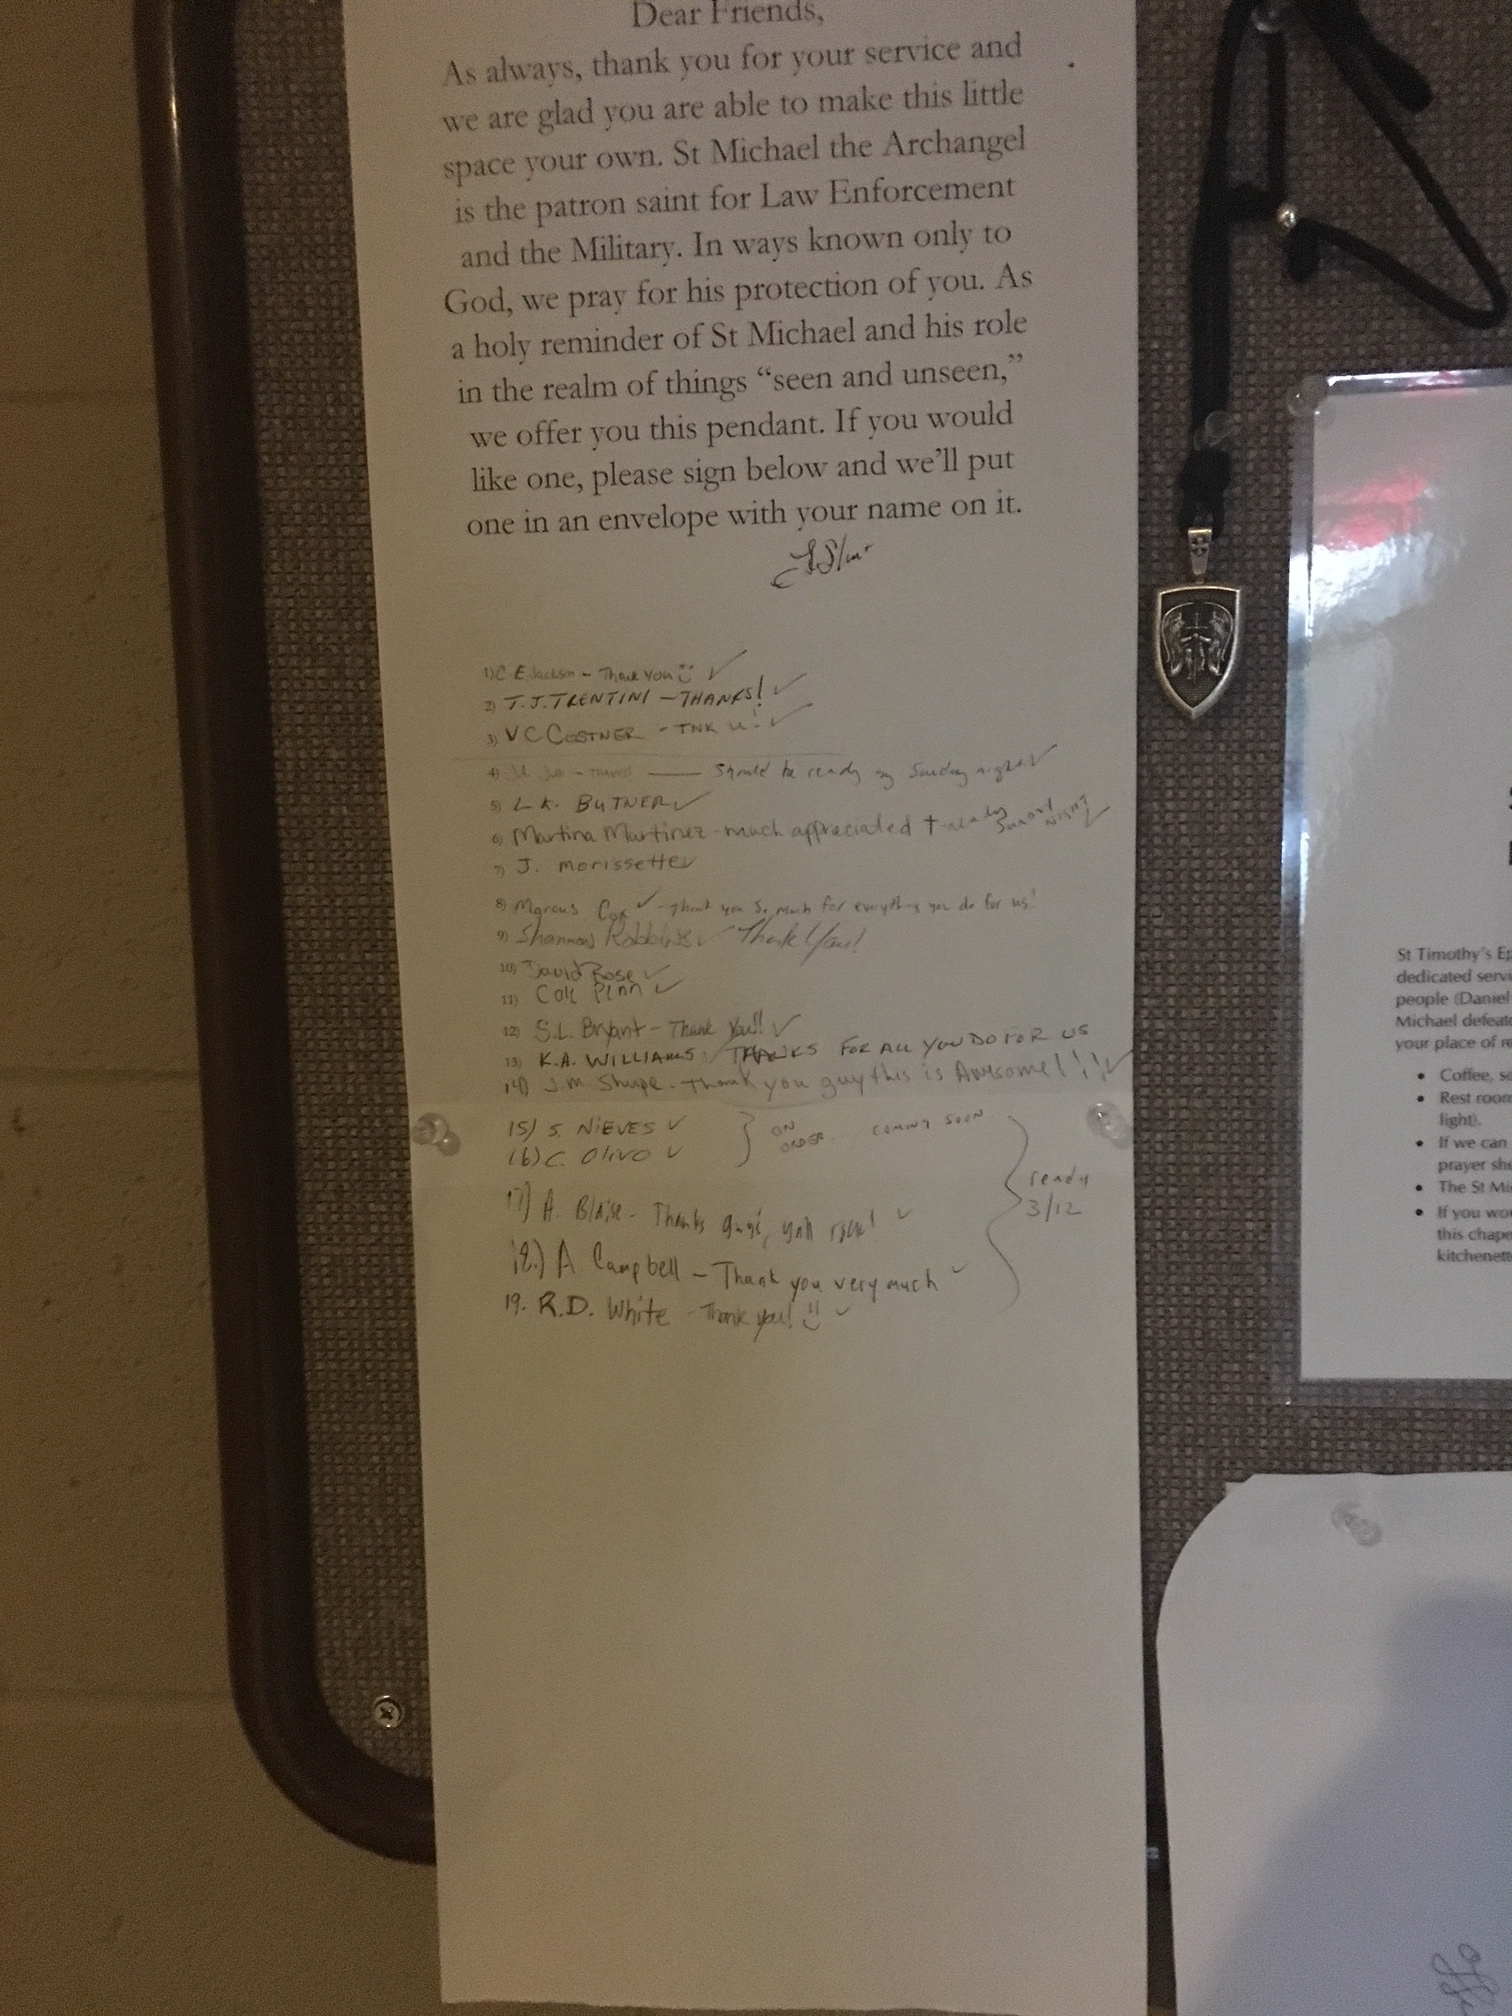 Dear Friends,
As always, thank you for your service and
we are glad you are able to make this little
space your own. St Michael the Archangel
is the patron saint for Law Enforcement
and the Military. In ways known only to
God, we pray for his protection of you. As
a holy reminder of St Michael and his role
in the realm of things “seen and unseen,”
we offer you this pendant. If you would
like one, please sign below and we’ll put
one in an envelope with your name on it.
1) C E Jackson - Thank you
2) T.J. TRENTINI - THANKS!
3) V C COSTNER - TNK U!
4) should be ready by Sunday night
5) L K. BUTNER
6) Martina Martinez - much appreciated ready Sunday NIGHT
7) J. morissette
8) Marcus Cox - Thank you so much for everything you do for us!
9) Shannon Robbins Thank You!
10) David Rose
11) Cole Penn
12) S.L. Bryant - Thank you!!
13) K.A. WILLIAMS THANKS FOR ALL YOU DO FOR US
14) J.M. Shupe - Thank you guy this is Awesome!!!
15) S. NIEVES
16) C. Olivo
ON ORDER... COMING SOON
17) A. Blaise - Thanks guys, yall rock!
18.) A Campbell - Thank you very much
19. R.D. White - Thank you!
ready
3/12
St Timothy’s
dedicated
people (Daniel
Michael
your place of
• Coffee,
• Rest
light).
• If we can
prayer
• The St
• If you
this